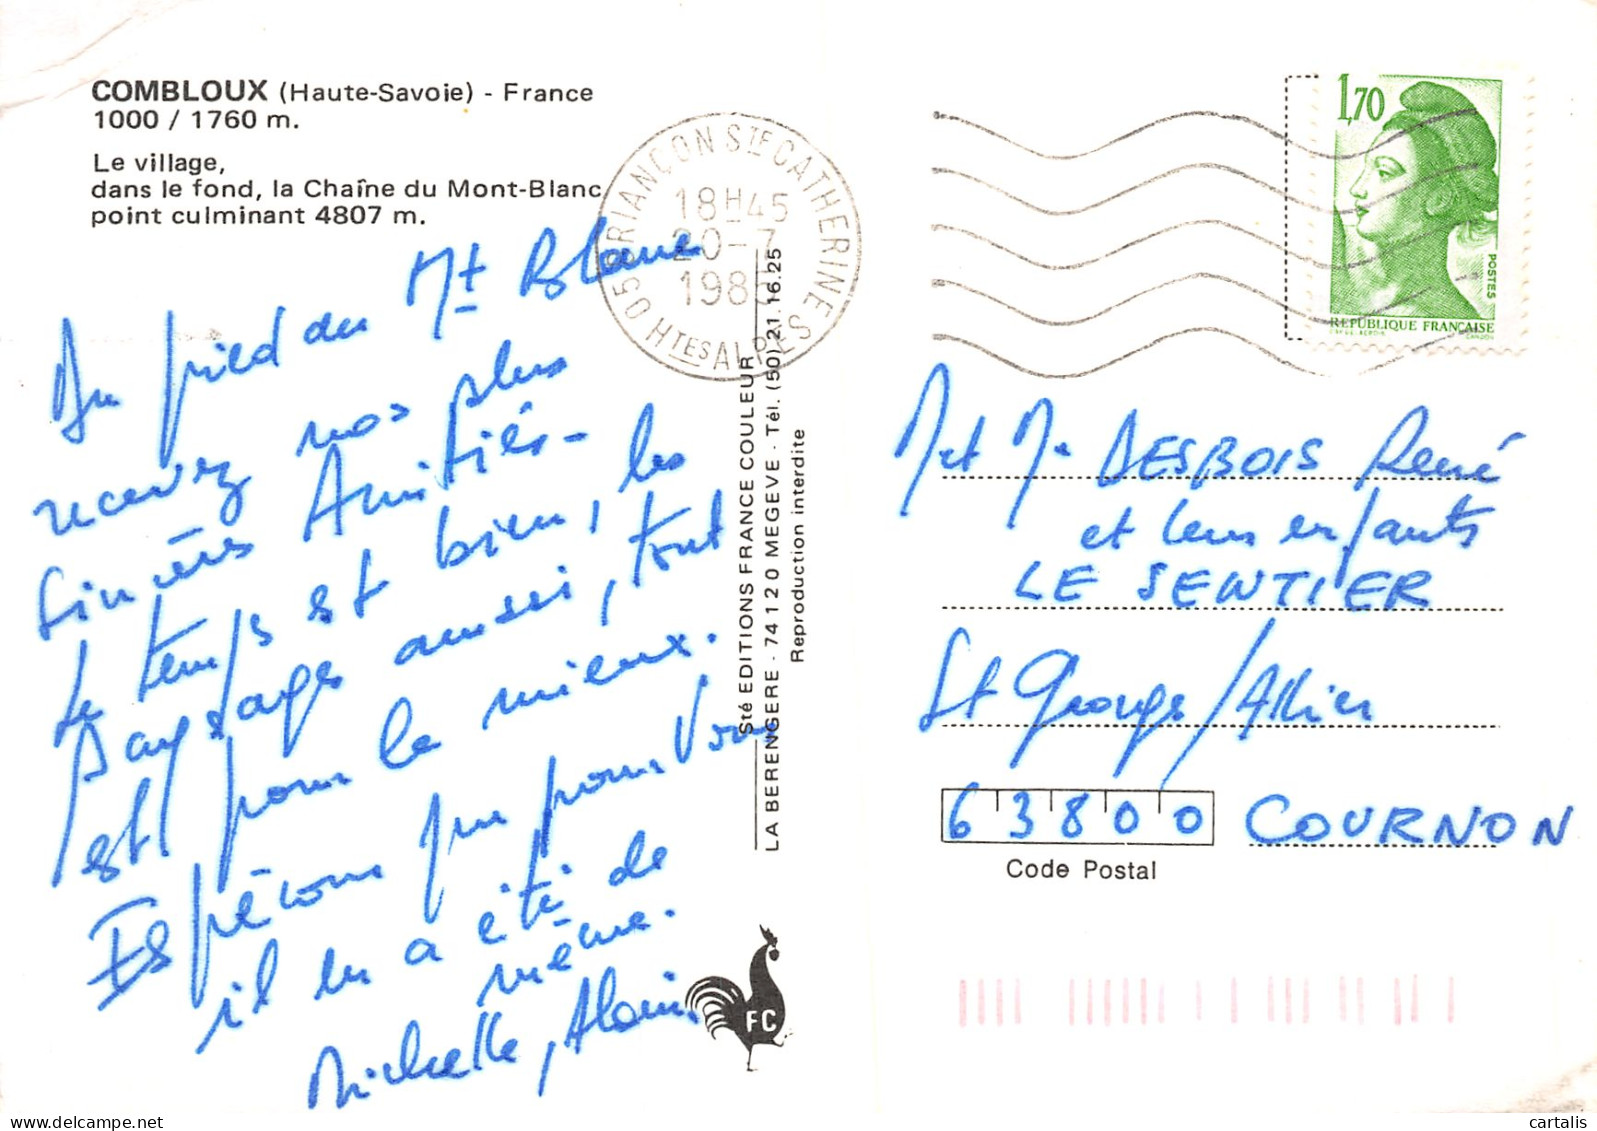 COMBLOUX (Haute-Savoie) - France
1000 / 1760 m.
Le village,
dans le fond, la Chaîne du Mont-Blanc
point culminant 4807 m.
Au pied du Mt Blanc
recevez nos plus
sincères Amitiés-
Le temps est bien, les
paysages aussi, tout
est pour le mieux.
Espérons que pour Vous
il en a été de
même.
Michelle, Alain.
05 BRIANÇON STE CATHERINE
18H45
20-7
198
HTES ALPES
Sté EDITIONS FRANCE COULEUR
LA BERENGERE - 74120 MEGEVE - Tél. (50) 21.16.25
Reproduction interdite
FC
1,70
POSTES
REPUBLIQUE FRANÇAISE
M et Me DESBOIS René
et leurs enfants
LE SENTIER
St Georges/Allier
63800 COURNON
Code Postal
cartalis